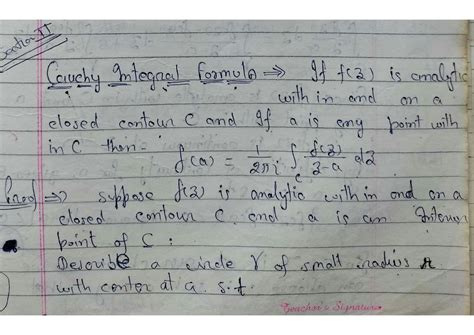 Section II
Cauchy Integral Formula ⇒ If f(z) is analytic
within and on a
closed contour C and If a is any point with
in C then
f(a) = 1/2πi ∫_C f(z)/z-a dz
Proof ⇒ Suppose f(z) is analytic within and on a
closed contour C and a is an Interior
point of C:
Describe a circle γ of small radius r
with center at a s.t.
Teacher's Signature